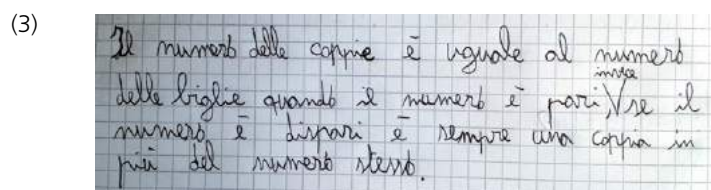 (3)
Il numero delle coppie è uguale al numero
delle biglie quando il numero è pari, invece se il
numero è dispari è sempre una coppia in
più del numero stesso.